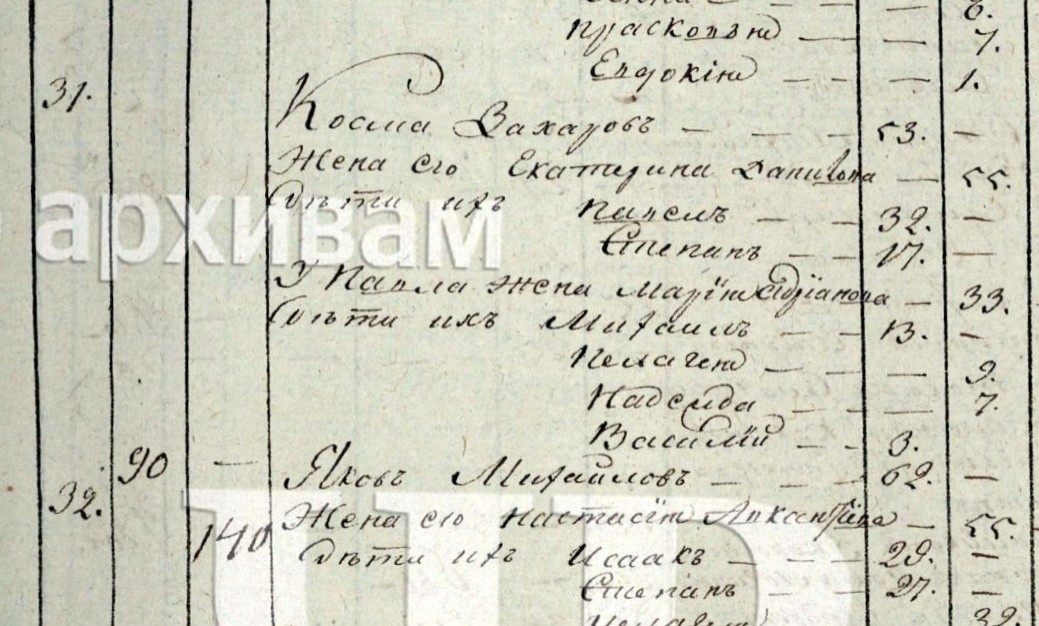 6.
Прасковья — — — 7.
Евдокія — — — 1.
31. Косма Захаровъ — — — 53. —
Жена его Екатерина Данилова — 55.
Дѣти ихъ Павелъ — — — 32. —
Степанъ — — — 17. —
У Павла жена Марія Адріанова — 33.
Дѣти ихъ Михаилъ — — 13. —
Пелагея — — — 9.
Надежда — — — 7.
Василій — — 3.
90 — Яковъ Михайловъ — — — 62. —
32.
140 Жена его Настасія — 55.
Дѣти ихъ Исаакъ — — — 29. —
Степанъ — — — 27. —
32.
архивам